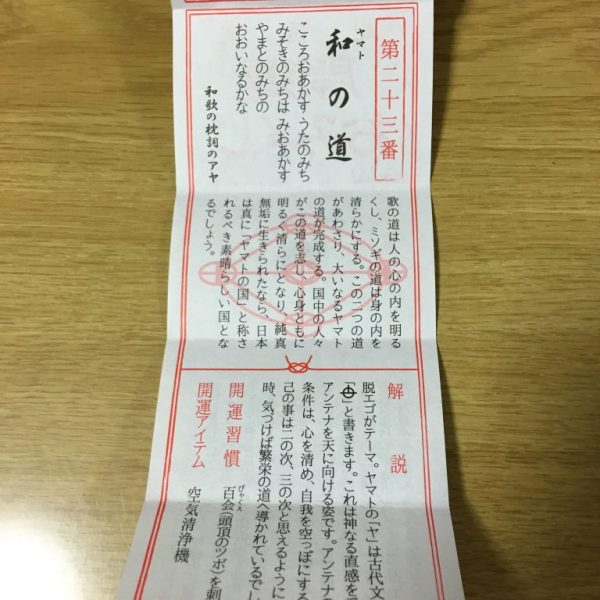 第二十三番
ヤマト
和の道
こころおあかす うたのみち
みそきのみちは みおあかす
やまとのみちの
おおいなるかな
和歌の枕詞のアヤ
歌の道は人の心の内を明る
くし、ミソギの道は身の内を
清らかにする。この二つの道
があわさり、大いなるヤマト
の道が完成する。国中の人々
がこの道を志し、心身ともに
明るく清らにとなり、純真
無垢に生きられたなら、日本
は真に「ヤマトの国」と称さ
れるべき素晴らしい国とな
るでしょう。
解説
脱エゴがテーマ。ヤマトの「ヤ」は古代文
」と書きます。これは神なる直感を
アンテナを天に向ける姿です。アンテナの
条件は、心を清め、自我を空っぽにする
己の事は二の次、三の次と思えるように
時、気づけば繁栄の道へ導かれているでし
開運習慣
びゃくえ
百会(頭頂のツボ)を刺
開運アイテム
空気清浄機